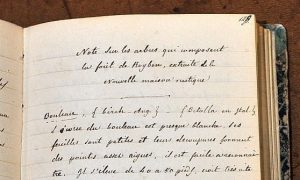 Note sur les arbres qui composent
la forêt de Boybon, extraite de la
Nouvelle maison rustique
Bouleau, (birch - Ang.) (Betulla en gtal)
L'écorce du bouleau est presque blanche. Ses
feuilles sont petites et leurs decoupures forment
des pointes assez aigues, il est facile a reconnaitre
Il s'élève de 40 a 50 pieds,